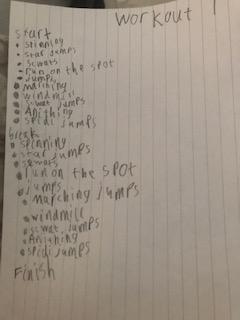 workout
start
• spinning
• star jumps
• scwats
• run on the spot
• jumps
• marching
• windmill
• scwat jumps
• Anithing
• spidi jumps
break
• spinning
• star jumps
• scwats
• run on the spot
• jumps
• marching jumps
• windmill
• scwat jumps
• Anithing
• spidi jumps
Finish